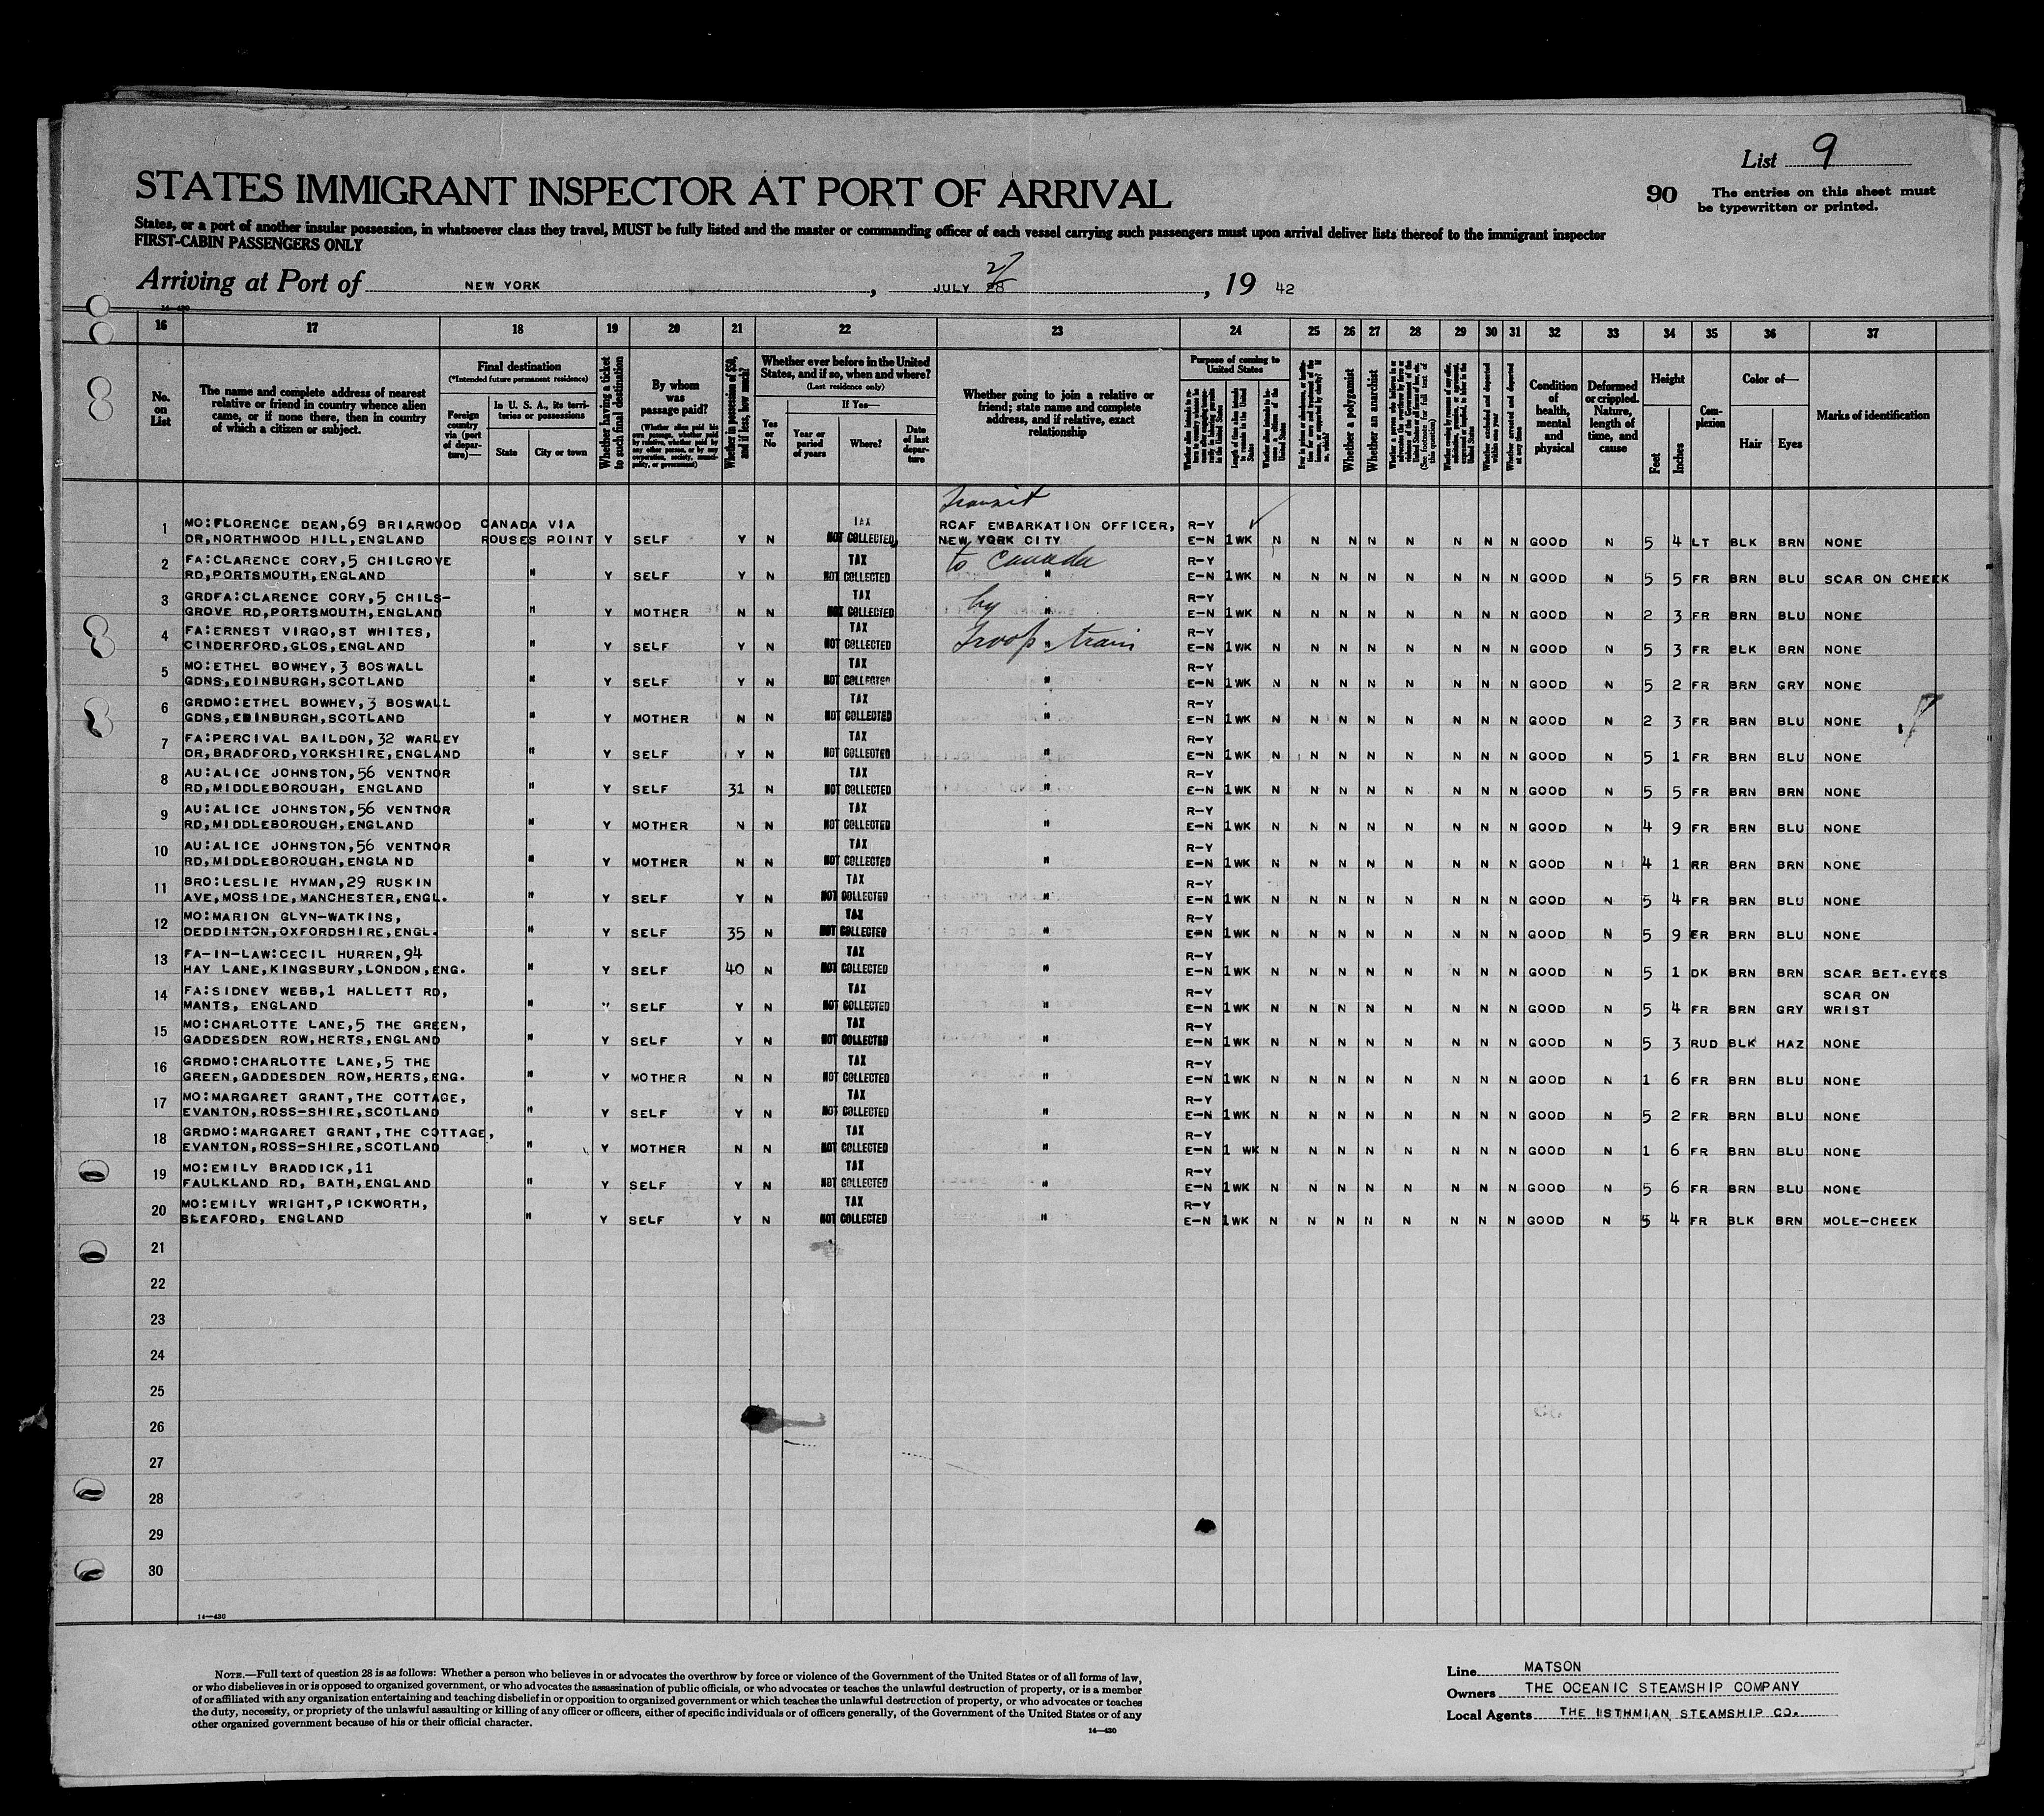 List 9
STATES IMMIGRANT INSPECTOR AT PORT OF ARRIVAL
90 The entries on this sheet must
be typewritten or printed.
States, or a port of another insular possession, in whatsoever class they travel, MUST be fully listed and the master or commanding officer of each vessel carrying such passengers must upon arrival deliver lists thereof to the immigrant inspector
FIRST-CABIN PASSENGERS ONLY
Arriving at Port of NEW YORK, JULY 27, 19 42
14—430
16 17 18 19 20 21 22 23 24 25 26 27 28 29 30 31 32 33 34 35 36 37
No. on List
The name and complete address of nearest
relative or friend in country whence alien
came, or if none there, then in country
of which a citizen or subject.
Final destination
(*Intended future permanent residence)
Foreign country via (port of departure)—
In U. S. A., its territories or possessions
State
City or town
Whether having a ticket to such final destination
By whom was passage paid?
(Whether alien paid his own passage, whether paid by relative, whether paid by any other person, or by any corporation, society, municipality, or government)
Whether in possession of $50, and if less, how much?
Whether ever before in the United
States, and if so, when and where?
(Last residence only)
Yes or No
If Yes—
Year or period of years
Where?
Date of last departure
Whether going to join a relative or
friend; state name and complete
address, and if relative, exact
relationship
Purpose of coming to United States
Length of time alien intends to remain in the United States
Whether a polygamist
Whether an anarchist
(See footnote for full text of this question)
Whether arrested and deported at any time
Condition of health, mental and physical
Deformed or crippled. Nature, length of time, and cause
Height
Feet
Inches
Complexion
Color of—
Hair
Eyes
Marks of identification
Transit
1 MO:FLORENCE DEAN,69 BRIARWOOD CANADA VIA TAX RCAF EMBARKATION OFFICER, R-Y
DR,NORTHWOOD HILL,ENGLAND ROUSES POINT Y SELF Y N NOT COLLECTED NEW YORK CITY E-N 1WK N N N N N N N N GOOD N 5 4 LT BLK BRN NONE
to Canada
2 FA:CLARENCE CORY,5 CHILGROVE TAX R-Y
RD,PORTSMOUTH,ENGLAND " Y SELF Y N NOT COLLECTED " E-N 1WK N N N N N N N N GOOD N 5 5 FR BRN BLU SCAR ON CHEEK
by
3 GRDFA:CLARENCE CORY,5 CHILS- TAX R-Y
GROVE RD,PORTSMOUTH,ENGLAND " Y MOTHER N N NOT COLLECTED " E-N 1WK N N N N N N N N GOOD N 2 3 FR BRN BLU NONE
Troop train
4 FA:ERNEST VIRGO,ST WHITES, TAX R-Y
CINDERFORD,GLOS,ENGLAND " Y SELF Y N NOT COLLECTED " E-N 1WK N N N N N N N N GOOD N 5 3 FR BLK BRN NONE
5 MO:ETHEL BOWHEY,3 BOSWALL TAX R-Y
GDNS,EDINBURGH,SCOTLAND " Y SELF Y N NOT COLLECTED " E-N 1WK N N N N N N N N GOOD N 5 2 FR BRN GRY NONE
6 GRDMO:ETHEL BOWHEY,3 BOSWALL TAX R-Y
GDNS,EDINBURGH,SCOTLAND " Y MOTHER N N NOT COLLECTED " E-N 1WK N N N N N N N N GOOD N 2 3 FR BRN BLU NONE
7 FA:PERCIVAL BAILDON,32 WARLEY TAX R-Y
DR,BRADFORD,YORKSHIRE,ENGLAND " Y SELF Y N NOT COLLECTED " E-N 1WK N N N N N N N N GOOD N 5 1 FR BRN BLU NONE
8 AU:ALICE JOHNSTON,56 VENTNOR TAX R-Y
RD,MIDDLEBOROUGH, ENGLAND " Y SELF 31 N NOT COLLECTED " E-N 1WK N N N N N N N N GOOD N 5 5 FR BRN BRN NONE
9 AU:ALICE JOHNSTON,56 VENTNOR TAX R-Y
RD,MIDDLEBOROUGH,ENGLAND " Y MOTHER N N NOT COLLECTED " E-N 1WK N N N N N N N N GOOD N 4 9 FR BRN BLU NONE
10 AU:ALICE JOHNSTON,56 VENTNOR TAX R-Y
RD,MIDDLEBOROUGH,ENGLA ND " Y MOTHER N N NOT COLLECTED " E-N 1WK N N N N N N N N GOOD N 4 1 RR BRN BRN NONE
11 BRO:LESLIE HYMAN,29 RUSKIN TAX R-Y
AVE,MOSSIDE,MANCHESTER,ENGL. " Y SELF Y N NOT COLLECTED " E-N 1WK N N N N N N N N GOOD N 5 4 FR BRN BLU NONE
12 MO:MARION GLYN-WATKINS, TAX R-Y
DEDDINTON,OXFORDSHIRE,ENGL. " Y SELF 35 N NOT COLLECTED " E-N 1WK N N N N N N N N GOOD N 5 9 ER BRN BLU NONE
13 FA-IN-LAW:CECIL HURREN,94 TAX R-Y
HAY LANE,KINGSBURY,LONDON,ENG. " Y SELF 40 N NOT COLLECTED " E-N 1WK N N N N N N N N GOOD N 5 1 DK BRN BRN SCAR BET.EYES
14 FA:SIDNEY WEBB,1 HALLETT RD, TAX R-Y SCAR ON
MANTS, ENGLAND " " SELF Y N NOT COLLECTED " E-N 1WK N N N N N N N N GOOD N 5 4 FR BRN GRY WRIST
15 MO:CHARLOTTE LANE,5 THE GREEN, TAX R-Y
GADDESDEN ROW,HERTS,ENGLAND " Y SELF Y N NOT COLLECTED " E-N 1WK N N N N N N N N GOOD N 5 3 RUD BLK HAZ NONE
16 GRDMO:CHARLOTTE LANE,5 THE TAX R-Y
GREEN,GADDESDEN ROW,HERTS,ENG. " Y MOTHER N N NOT COLLECTED " E-N 1WK N N N N N N N N GOOD N 1 6 FR BRN BLU NONE
17 MO:MARGARET GRANT,THE COTTAGE, TAX R-Y
EVANTON,ROSS-SHIRE,SCOTLAND " Y SELF Y N NOT COLLECTED " E-N 1WK N N N N N N N N GOOD N 5 2 FR BRN BLU NONE
18 GRDMO:MARGARET GRANT,THE COTTAGE, TAX R-Y
EVANTON,ROSS-SHIRE,SCOTLAND " Y MOTHER N N NOT COLLECTED " E-N 1 WK N N N N N N N N GOOD N 1 6 FR BRN BLU NONE
19 MO:EMILY BRADDICK,11 TAX R-Y
FAULKLAND RD, BATH,ENGLAND " Y SELF Y N NOT COLLECTED " E-N 1WK N N N N N N N N GOOD N 5 6 FR BRN BLU NONE
20 MO:EMILY WRIGHT,PICKWORTH, TAX R-Y
BLEAFORD, ENGLAND " Y SELF Y N NOT COLLECTED " E-N 1WK N N N N N N N N GOOD N 5 4 FR BLK BRN MOLE-CHEEK
21
22
23
24
25
26
27
28
29
30
14—430
NOTE.—Full text of question 28 is as follows: Whether a person who believes in or advocates the overthrow by force or violence of the Government of the United States or of all forms of law,
or who disbelieves in or is opposed to organized government, or who advocates the assassination of public officials, or who advocates or teaches the unlawful destruction of property, or is a member
of or affiliated with any organization entertaining and teaching disbelief in or opposition to organized government or which teaches the unlawful destruction of property, or who advocates or teaches
the duty, necessity, or propriety of the unlawful assaulting or killing of any officer or officers, either of specific individuals or of officers generally, of the Government of the United States or of any
other organized government because of his or their official character.
14—430
Line MATSON
Owners THE OCEANIC STEAMSHIP COMPANY
Local Agents THE ISTHMIAN STEAMSHIP CO.